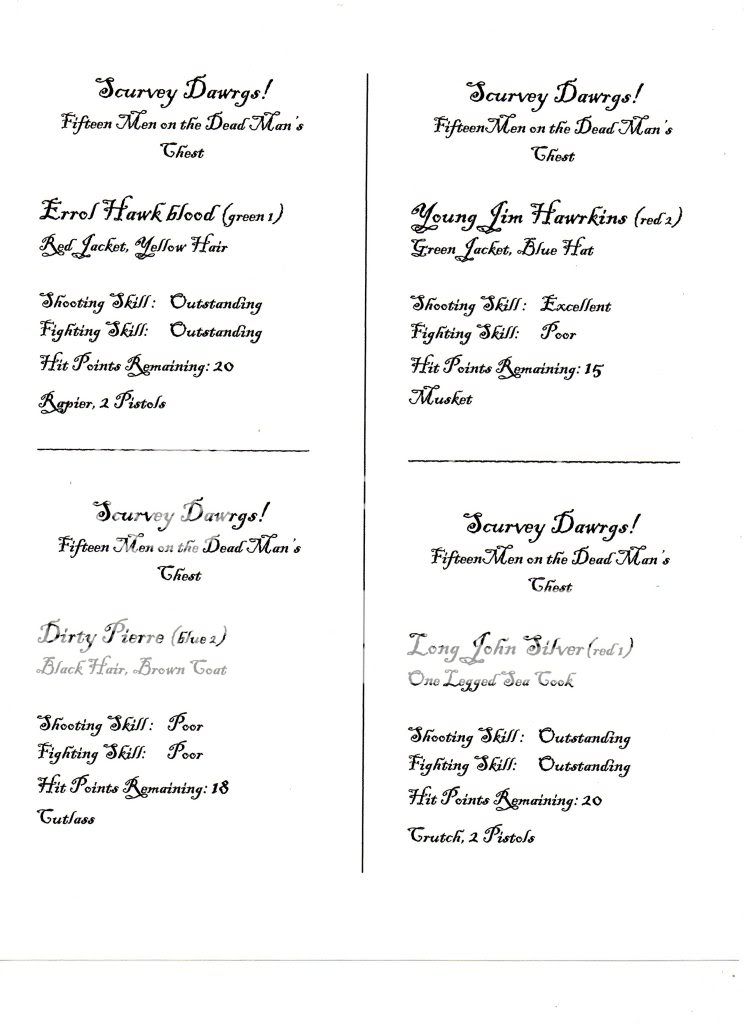 Scurvey Dawrgs!
Fifteen Men on the Dead Man's
Chest
Errol Hawkblood (green 1)
Red Jacket, Yellow Hair
Shooting Skill: Outstanding
Fighting Skill: Outstanding
Hit Points Remaining: 20
Rapier, 2 Pistols
Scurvey Dawrgs!
FifteenMen on the Dead Man's
Chest
Young Jim Hawrkins (red 2)
Green Jacket, Blue Hat
Shooting Skill: Excellent
Fighting Skill: Poor
Hit Points Remaining: 15
Musket
Scurvey Dawrgs!
Fifteen Men on the Dead Man's
Chest
Dirty Pierre (blue 2)
Black Hair, Brown Coat
Shooting Skill: Poor
Fighting Skill: Poor
Hit Points Remaining: 18
Cutlass
Scurvey Dawrgs!
FifteenMen on the Dead Man's
Chest
Long John Silver (red 1)
One Legged Sea Cook
Shooting Skill: Outstanding
Fighting Skill: Outstanding
Hit Points Remaining: 20
Crutch, 2 Pistols